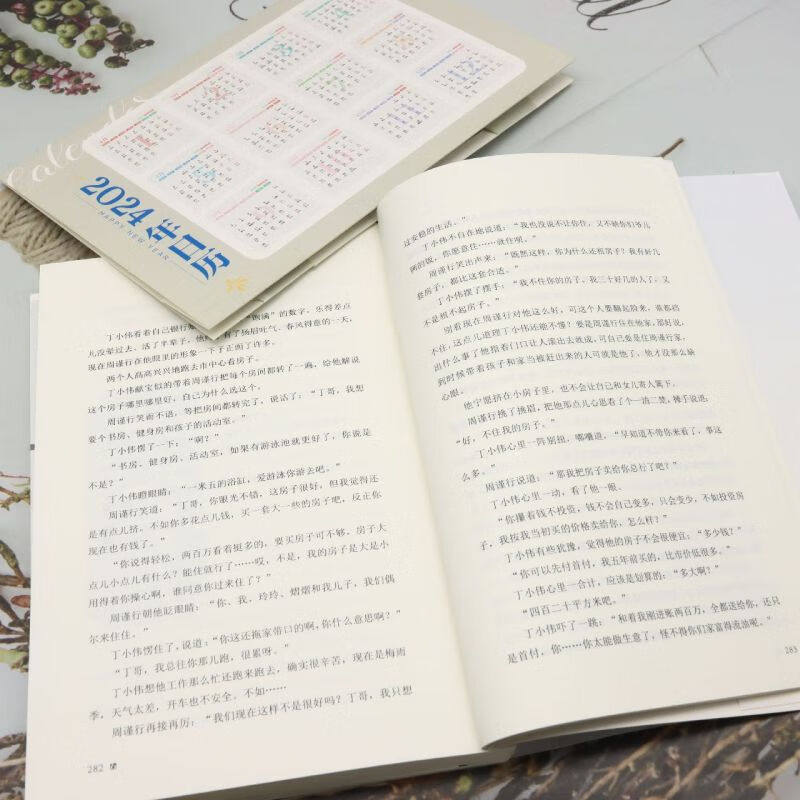 Calendar
2024年日历
HAPPY NEW YEAR
丁小伟看着自己银行账 “饱满”的数字，乐得差点
儿没晕过去、活了半辈子，他 有了扬眉吐气、春风得意的一天，
现在周谨行在他眼里的形象一下子正面了许多。
两个人高高兴兴地跑去市中心看房子。
丁小伟献宝似的带着周谨行把每个房间都转了一遍，给他解说
这个房子哪里哪里好，自己为什么选这个。
周谨行笑而不语，等把房间都转完了，说话了：“丁哥，我想
要个书房、健身房和孩子的活动室。”
丁小伟愣了一下：“啊？”
“书房、健身房、活动室，如果有游泳池就更好了，你说是
不是？”
丁小伟瞪眼睛：“一米五的浴缸，爱游泳你游去吧。”
周谨行笑道：“丁哥，你眼光不错，这房子很好，但我觉得还
是有点儿挤。不如你多花点儿钱，买一套大一些的房子吧，反正你
现在也有钱了。”
“你说得轻松，两百万看着挺多的，要买房子可不够。房子大
点儿小点儿有什么？能住就行了……哎，不是，我的房子是大是小
用得着你操心啊，谁同意你过来住了？”
周谨行朝他眨眼睛：“你、我、玲玲、熠熠和我儿子，我们偶
尔来住住。”
丁小伟愣住了，说道：“你这还拖家带口的啊，你什么意思啊？”
“丁哥，我总往你那儿跑，很累呀。”
丁小伟想他工作那么忙还跑来跑去，确实很辛苦，现在是梅雨
季，天气太差，开车也不安全。不如……
周谨行再接再厉：“我们现在这样不是很好吗？丁哥，我只想
282
过安稳的生活。”
丁小伟不自在地说道：“我也没说不让你住，又不缺你们爷儿
俩的饭，你愿意住……就住呗。”
周谨行笑出声来：“既然这样，你为什么还租房子？我有好几
套房子，都比这套合适。”
丁小伟摆了摆手：“我不住你的房子，我三十好几的人了，又
不是租不起房子。”
别看现在周谨行对他这么好，可这个人要翻起脸来，谁都挡
不住，这点儿道理丁小伟还能不懂？要是周谨行住在他家，那好说，
出什么事了他指着门口让人滚出去就成，可自己要是住周谨行家，
到时候带着孩子和家当被赶出来的人可就是他了，他才没那么缺
心眼。
他宁愿挤在小房子里，也不会让自己和女儿寄人篱下。
周谨行挑了挑眉，把他那点儿心思看了个一清二楚，摊手说道，
“好，不住我的房子。”
丁小伟心里一阵别扭，嘟囔道，“早知道不带你来看了，事这
么多。”
周谨行说道：“那我把房子卖给你总行了吧？”
丁小伟心里一动，看了他一眼。
“你攥着钱不投资，钱不会自己变多，只会变少，不如投资房
子，我按我当初买的价格卖给你，怎么样？”
丁小伟有些犹豫，觉得他的房子不会很便宜：“多少钱？”
“你可以先付首付，我五年前买的，比市价低很多。”
丁小伟心里一合计，应该是划算的：“多大啊？”
“四百二十平方米吧。”
丁小伟吓了一跳：“和着我刚进账两百万，全都送给你，还只
是首付，你……你太能做生意了，怪不得你们家富得流油呢。”
283